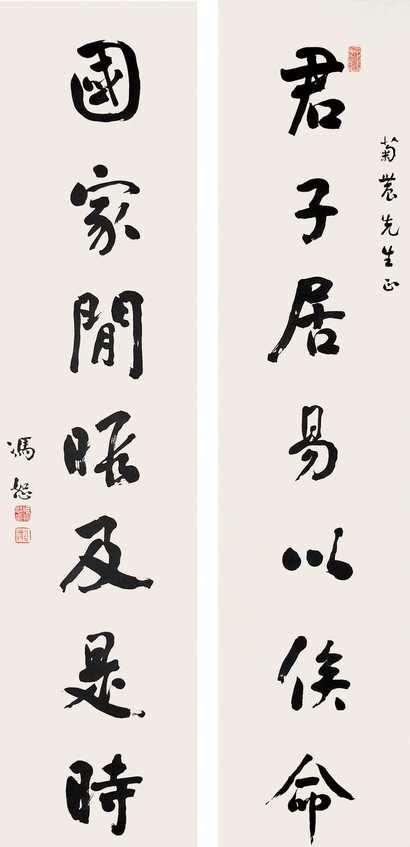 菊農先生正
君子居易以俟命
國家閒暇及是時
馮恕